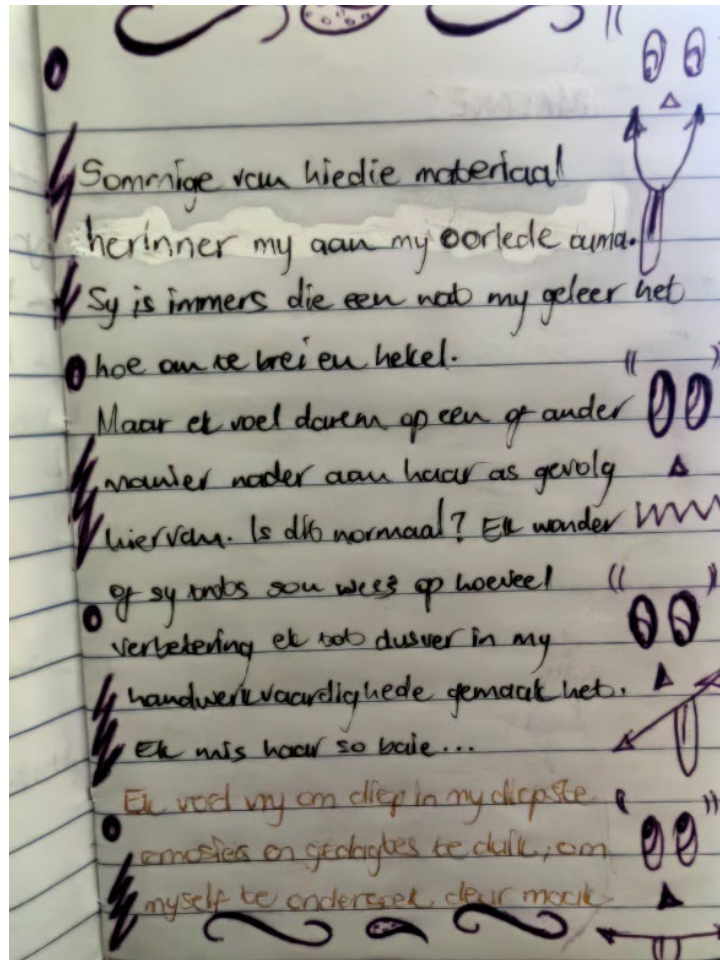 Sommige van hiedie materiaal
herinner my aan my oorlede ouma.
Sy is immers die een wat my geleer het
hoe om te brei en hekel.
Maar ek voel darem op een of ander
manier nader aan haar as gevolg
hiervan. Is dit normaal? Ek wonder
of sy trots sou wees op hoeveel
verbetering ek tot dusver in my
handwerkvaardighede gemaak het.
Ek mis haar so baie...
Ek voel vry om diep in my diepste
emosies en gedagtes te duik, om
myself te ondersoek, deur